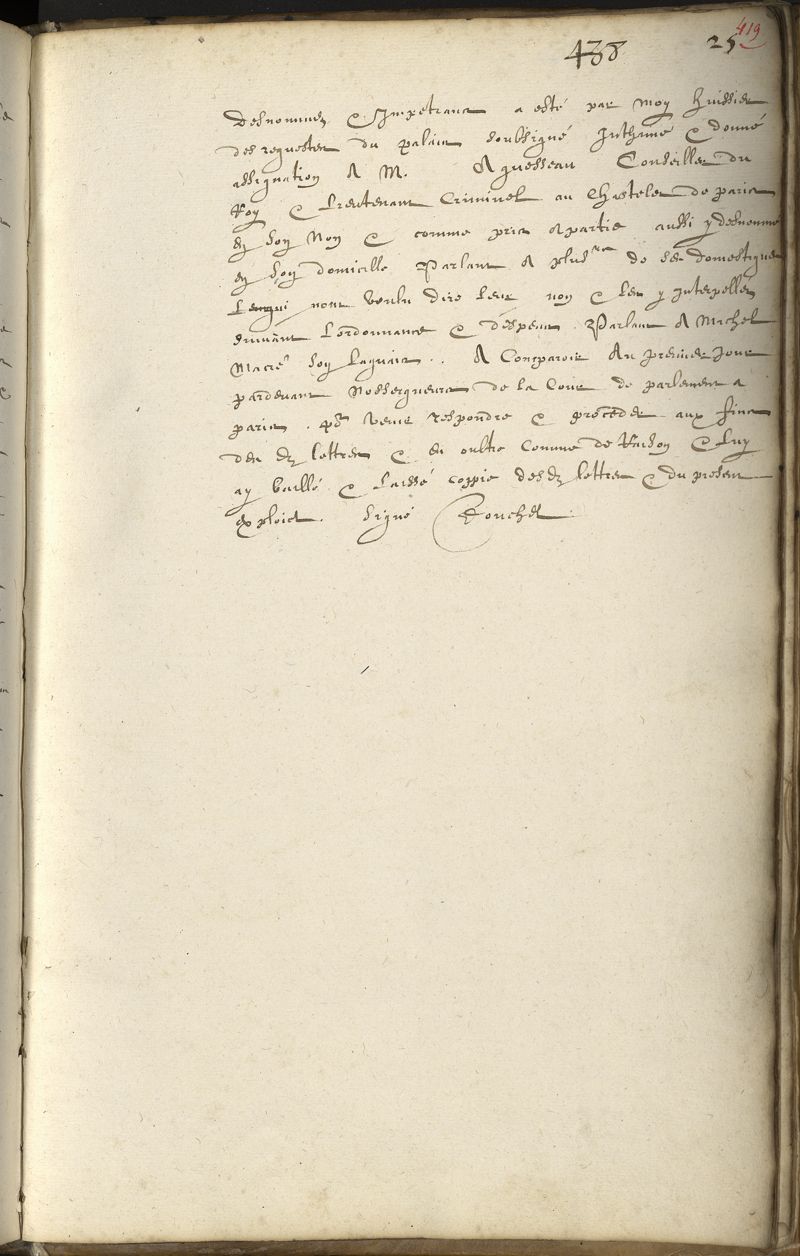 438 25 419
desnommez & Impetrans a esté par moy huissier
des requestes du palais soubsigné Inthimé & donné
assignation A M. Aguesseau Conseiller du
Roy & Lieutenant Criminel au Chastelet de paris
en son Nom & comme pris apartie aussi y desnommé
en son domicille Parlant A plusrs de ses domestiques
Lesqui nont voulu dire leur nom & les y Interpellés
suivant Lordonnance & despens. Parlant A Michel
Macré son laquais. . A Comparoir Au premier Jour
pardevant Nosseigneurs de la Cour de parlement a
paris. pr venir respondre & proceder aux fins
des dz lettres & en oultre comme de Raison & luy
ay baillé & laissé coppie desdz lettres & du present
exploict. Signé Touchet